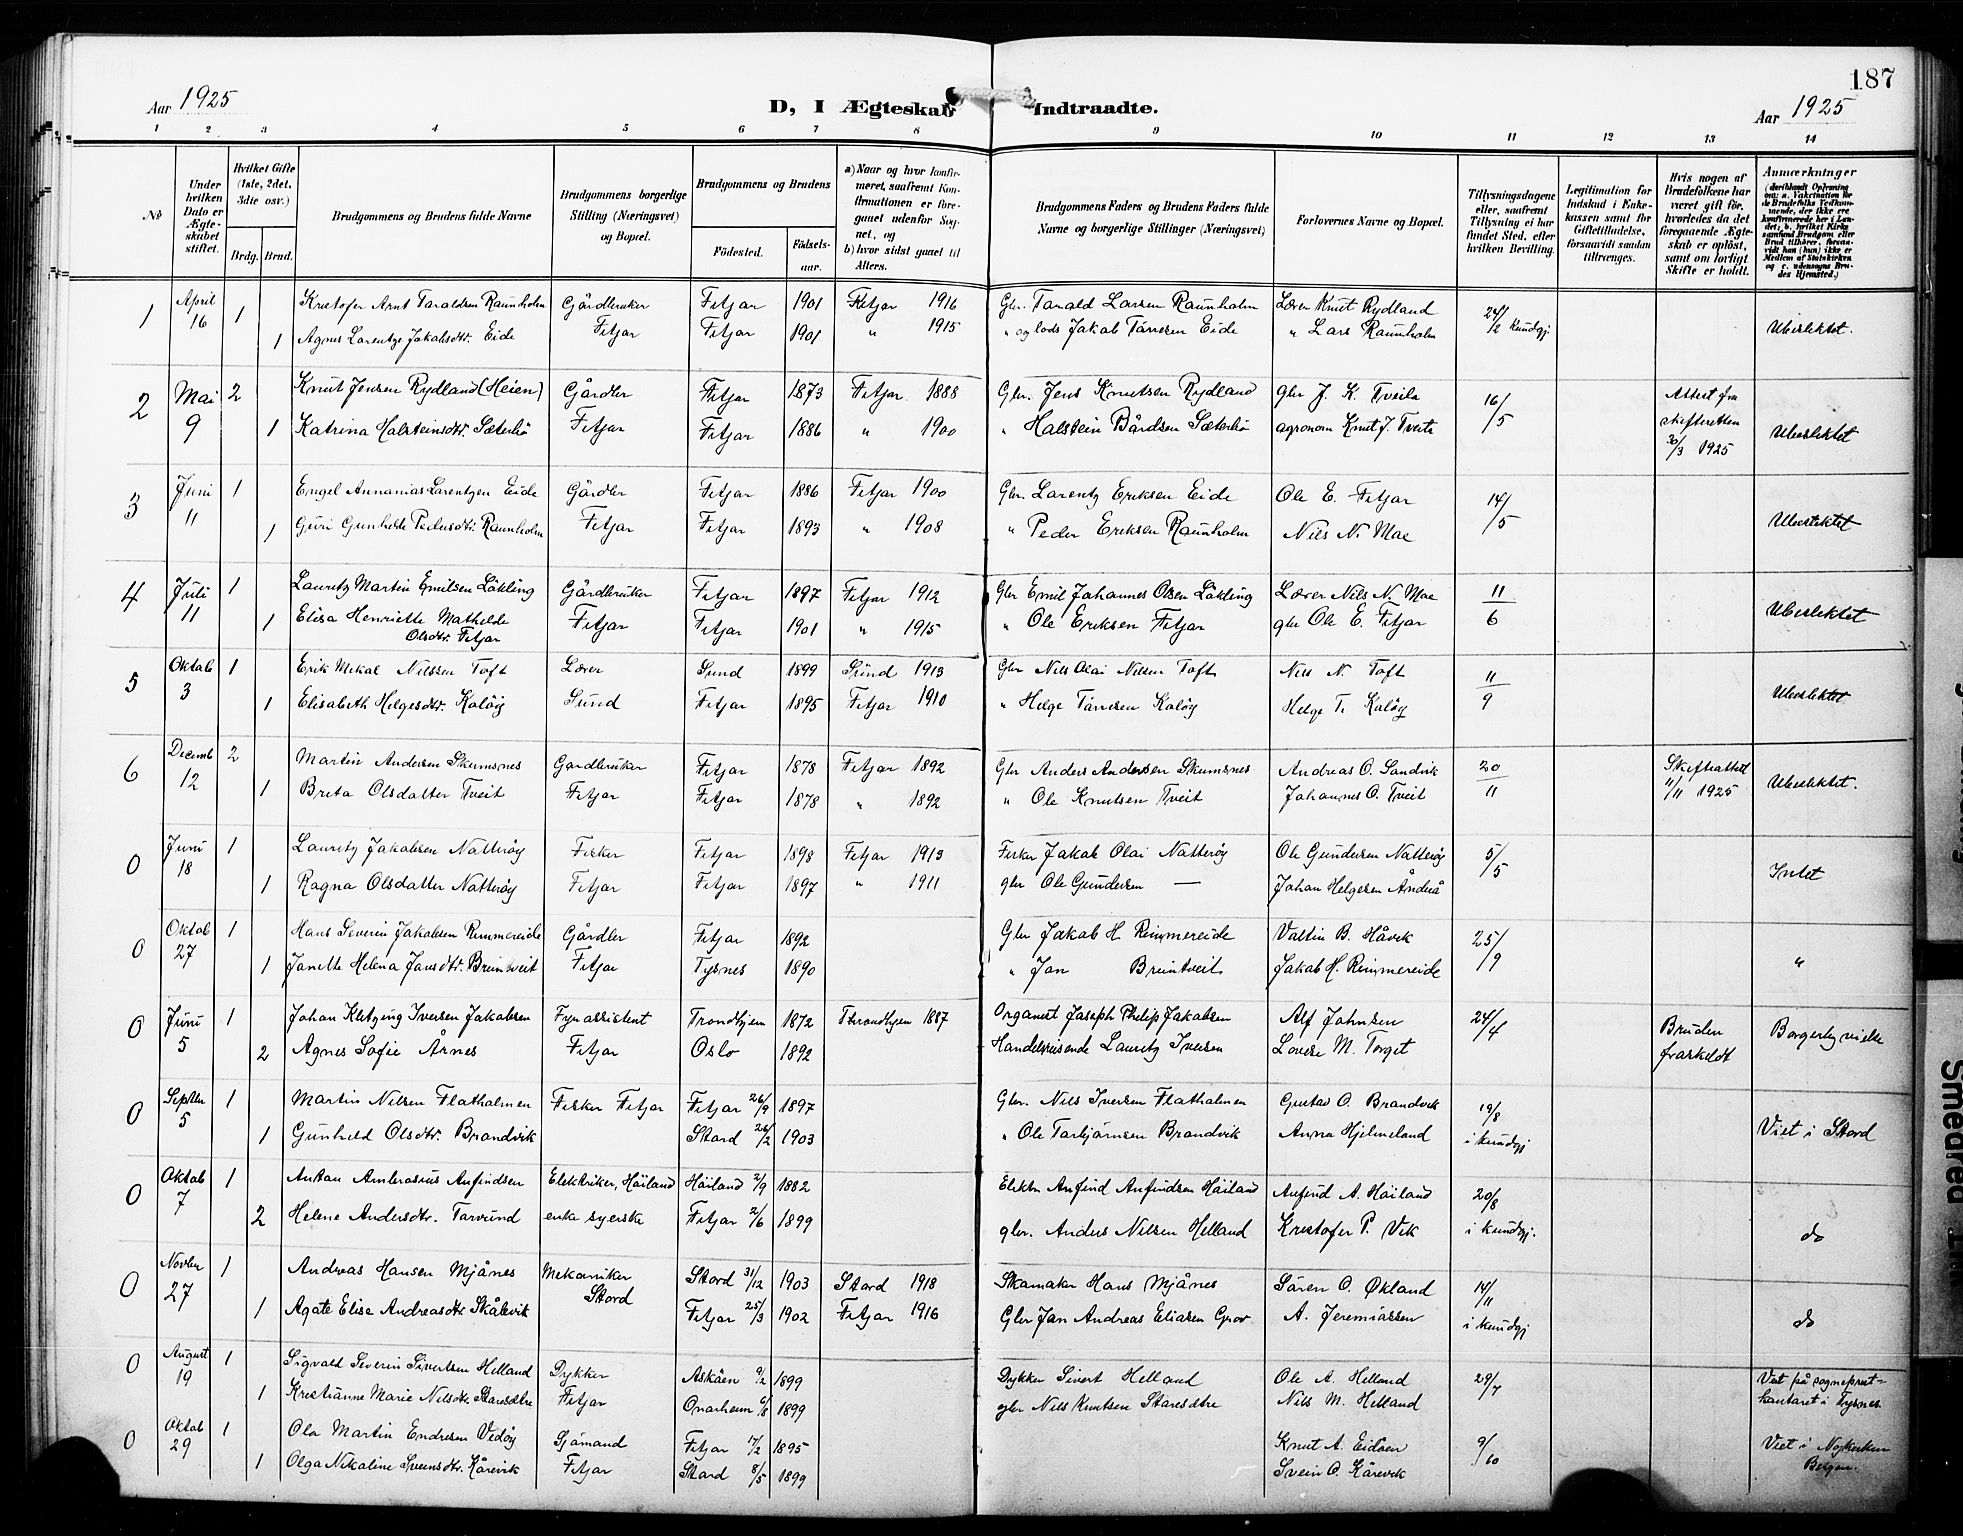 187
Aar 1925
D, I Ægteskab Indtraadte.
Aar 1925
1 2 3 4 5 6 7 8 9 10 11 12 13 14
№
Under hvilken Dato er Ægteskabet stiftet.
Hvilket Gifte (1ste, 2det, 3die osv.)
Brdg. Brud.
Brudgommens og Brudens fulde Navne
Brudgommens borgerlige Stilling (Næringsvei) og Bopæl.
Brudgommens og Brudens
Fødested.
Fødselsaar.
a) Naar og hvor konfirmeret, saafremt Konfirmationen er foregaaet udenfor Sognet, og
b) hvor sidst gaaet til Alters.
Brudgommens Faders og Brudens Faders fulde Navne og borgerlige Stillinger (Næringsvei)
Forlovernes Navne og Bopæl.
Tillysningsdagene eller, saafremt Tillysning ei har fundet Sted, efter hvilken Bevilling.
Legitimation for Indskud i Enkekassen samt for Giftetilladelse, forsaavidt saadan tiltrænges.
Hvis nogen af Brudefolkene har været gift før, hvorledes da det foregaaende Ægteskab er opløst, samt om lovligt Skifte er holdt.
Anmærkninger
1 April 16 1 Kristofer Arnt Taraldsen Raunholm Gårdbruker Fitjar 1901 Fitjar 1916 Gbr. Tarald Larsen Raunholm Lærer Knut Rydland 24/2 kundgj
1 Agnes Larentze Jakobsdtr. Eide Fitjar Fitjar 1901 " 1915 " og lods Jakob Tørresen Eide " Lars Raunholm Ubeslektet.
2 Mai 9 2 Knut Jensen Rydland (Heien) Gårdbr Fitjar 1873 Fitjar 1888 Gbr. Jens Knutsen Rydland gbr J. K. Tveita 16/5 Attest fra skifteretten 30/3 1925
1 Katrina Halsteinsdtr. Sæterbø Fitjar Fitjar 1886 " 1900 " Halstein Bårdsen Sæterbø agronom Knut J. Tveit Ubeslektet
3 Juni 11 1 Engel Annanias Larentzen Eide Gårdbr Fitjar 1886 Fitjar 1900 Gbr. Larentz Eriksen Eide Ole E. Fitjar 14/5
1 Guri Gunhilde Pedersdtr. Raunholm Fitjar Fitjar 1893 " 1908 " Peder Eriksen Raunholm Nils N. Mæ Ubeslektet
4 Juli 11 1 Lauritz Martin Emilsen Løkling Gårdbruker Fitjar 1897 Fitjar 1912 Gbr Emil Johannes Olsen Løkling Lærer Nils N. Mæ 11/6
1 Elisa Henriette Mathilde Olsdtr. Fitjar Fitjar Fitjar 1901 " 1915 " Ole Eriksen Fitjar gbr Ole E. Fitjar Ubeslektet
5 Oktob 3 1 Erik Mikal Nilssen Toft Lærer Sund 1899 Sund 1913 Gbr Nils Olai Nilsen Toft Nils N. Toft 11/9
1 Elisabeth Helgesdtr. Kaløy Sund Fitjar 1895 Fitjar 1910 " Helge Tørresen Kaløy Helge T. Kaløy Ubeslektet
6 Decemb 12 2 Martin Andersen Skumsnes Gårdbruker Fitjar 1878 Fitjar 1892 Gbr Anders Andersen Skumsnes Andreas O. Sandvik 20/11 Skifteattest 11/11 1925
1 Brita Olsdatter Tveit Fitjar Fitjar 1878 " 1892 " Ole Knutsen Tveit Johannes O. Tveit Ubeslektet.
0 Juni 18 1 Lauritz Jakobsen Natterøy Fisker Fitjar 1898 Fitjar 1913 Fisker Jakob Olai Natterøy Ole Gundersen Natterøy 5/5
1 Ragna Olsdatter Natterøy Fitjar Fitjar 1897 " 1911 gbr Ole Gundersen — Johan Helgesen Intet
0 Oktob 27 1 Hans Severin Jakobsen Rimmereide Gårdbr Fitjar 1892 Gbr Jakob H. Rimmereide Valtin B. Håvik 25/9
1 Janette Helena Jansdtr. Bruntveit Fitjar Tysnes 1890 " Jan Bruntveit Jakob H. Rimmereide "
0 Juni 5 1 Johan Klitzing Iversen Jakobsen Fyrassistent Trondhjem 1872 Throndhjem 1887 Organist Joseph Philip Jakobsen Alf Johnsen 24/4 Bruden fraskildt
2 Agnes Sofie Årnes Fitjar Oslo 1892 Handelsreisende Lauritz Iversen Lovise M. Torget Borgerlig vielse
0 Septbr 5 1 Martin Nilsen Flatholmen Fisker Fitjar Fitjar 26/9 1897 Gbr. Nils Iversen Flatholmen Gustav O. Brandvik 19/8 i kundgj
1 Gunhild Olsdtr. Brandvik Stord 26/2 1903 " Ole Torbjørnsen Brandvik Anna Hjelmeland Viet i Stord
0 Oktob 7 1 Anton Ambrosius Anfindsen Elektriker, Høiland Høiland 2/9 1882 Elektr. Anfind Anfindsen Høiland Anfind A. Høiland 20/8 i kundgj.
2 Helene Andersdtr. Tarvund enke syerske Fitjar 2/6 1899 gbr. Anders Nilsen Helland Kristofer P. Vik do
0 Novbr 27 1 Andreas Hansen Mjånes Mekaniker Stord Stord 31/12 1903 Stord 1918 Skomaker Hans Mjånes Søren O. Økland 14/11 i kundgj
1 Agate Elise Andreasdtr Skålevik Fitjar 25/3 1902 Fitjar 1916 Gbr Jan Andreas Eliasen Grov A. Jeremiassen do
0 August 19 1 Sigvald Severin Sivertsen Helland Dykker Askøen 9/2 1899 Dykker Sivert Helland Ole A. Helland 29/7
1 Kristianne Marie Nilsdtr. Staresdtre Fitjar Onarheim 6/8 1899 gbr Nils Knutsen Staresdtre Nils M. Helland Viet på sogneprestkontoret i Tysnes
0 Oktob 29 1 Ola Martin Endresen Vedøy Sjømand Fitjar 17/2 1895 Knut A. Eidøen 9/10
1 Olga Nikoline Sveinsdtr. Kårevik Fitjar Stord 8/5 1899 Svein O. Kårevik Viet i Nykirken Bergen.
Smedred